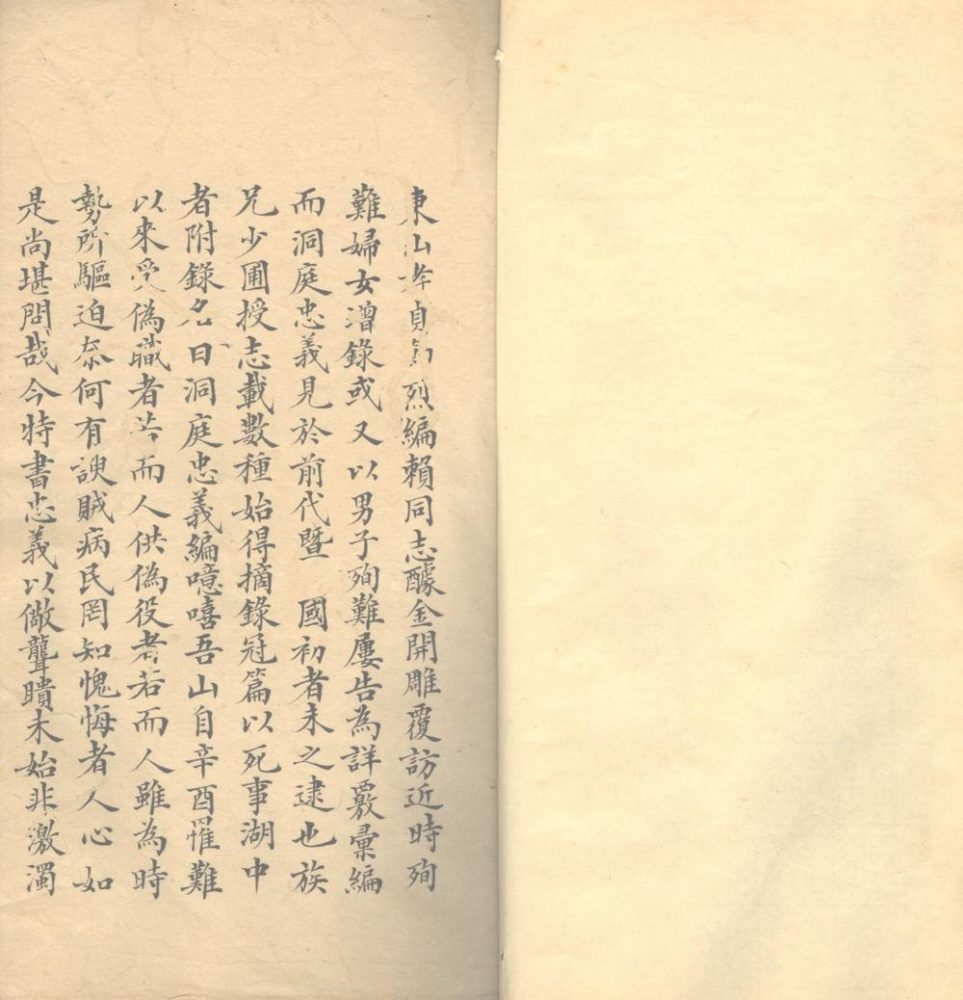 東山孝貞節烈編賴同志醵金開雕覆訪近時殉
難婦女增錄或又以男子殉難屢告為詳覈彙編
而洞庭忠義見於前代暨　國初者未之逮也族
兄少圃授志載數種始得摘錄冠篇以死事湖中
者附錄名曰洞庭忠義編噫嘻吾山自辛酉罹難
以來受偽職者若而人供偽役者若而人雖為時
勢所驅迫奈何有諛賊病民罔知愧悔者人心如
是尚堪問哉今特書忠義以儆聾聵未始非激濁